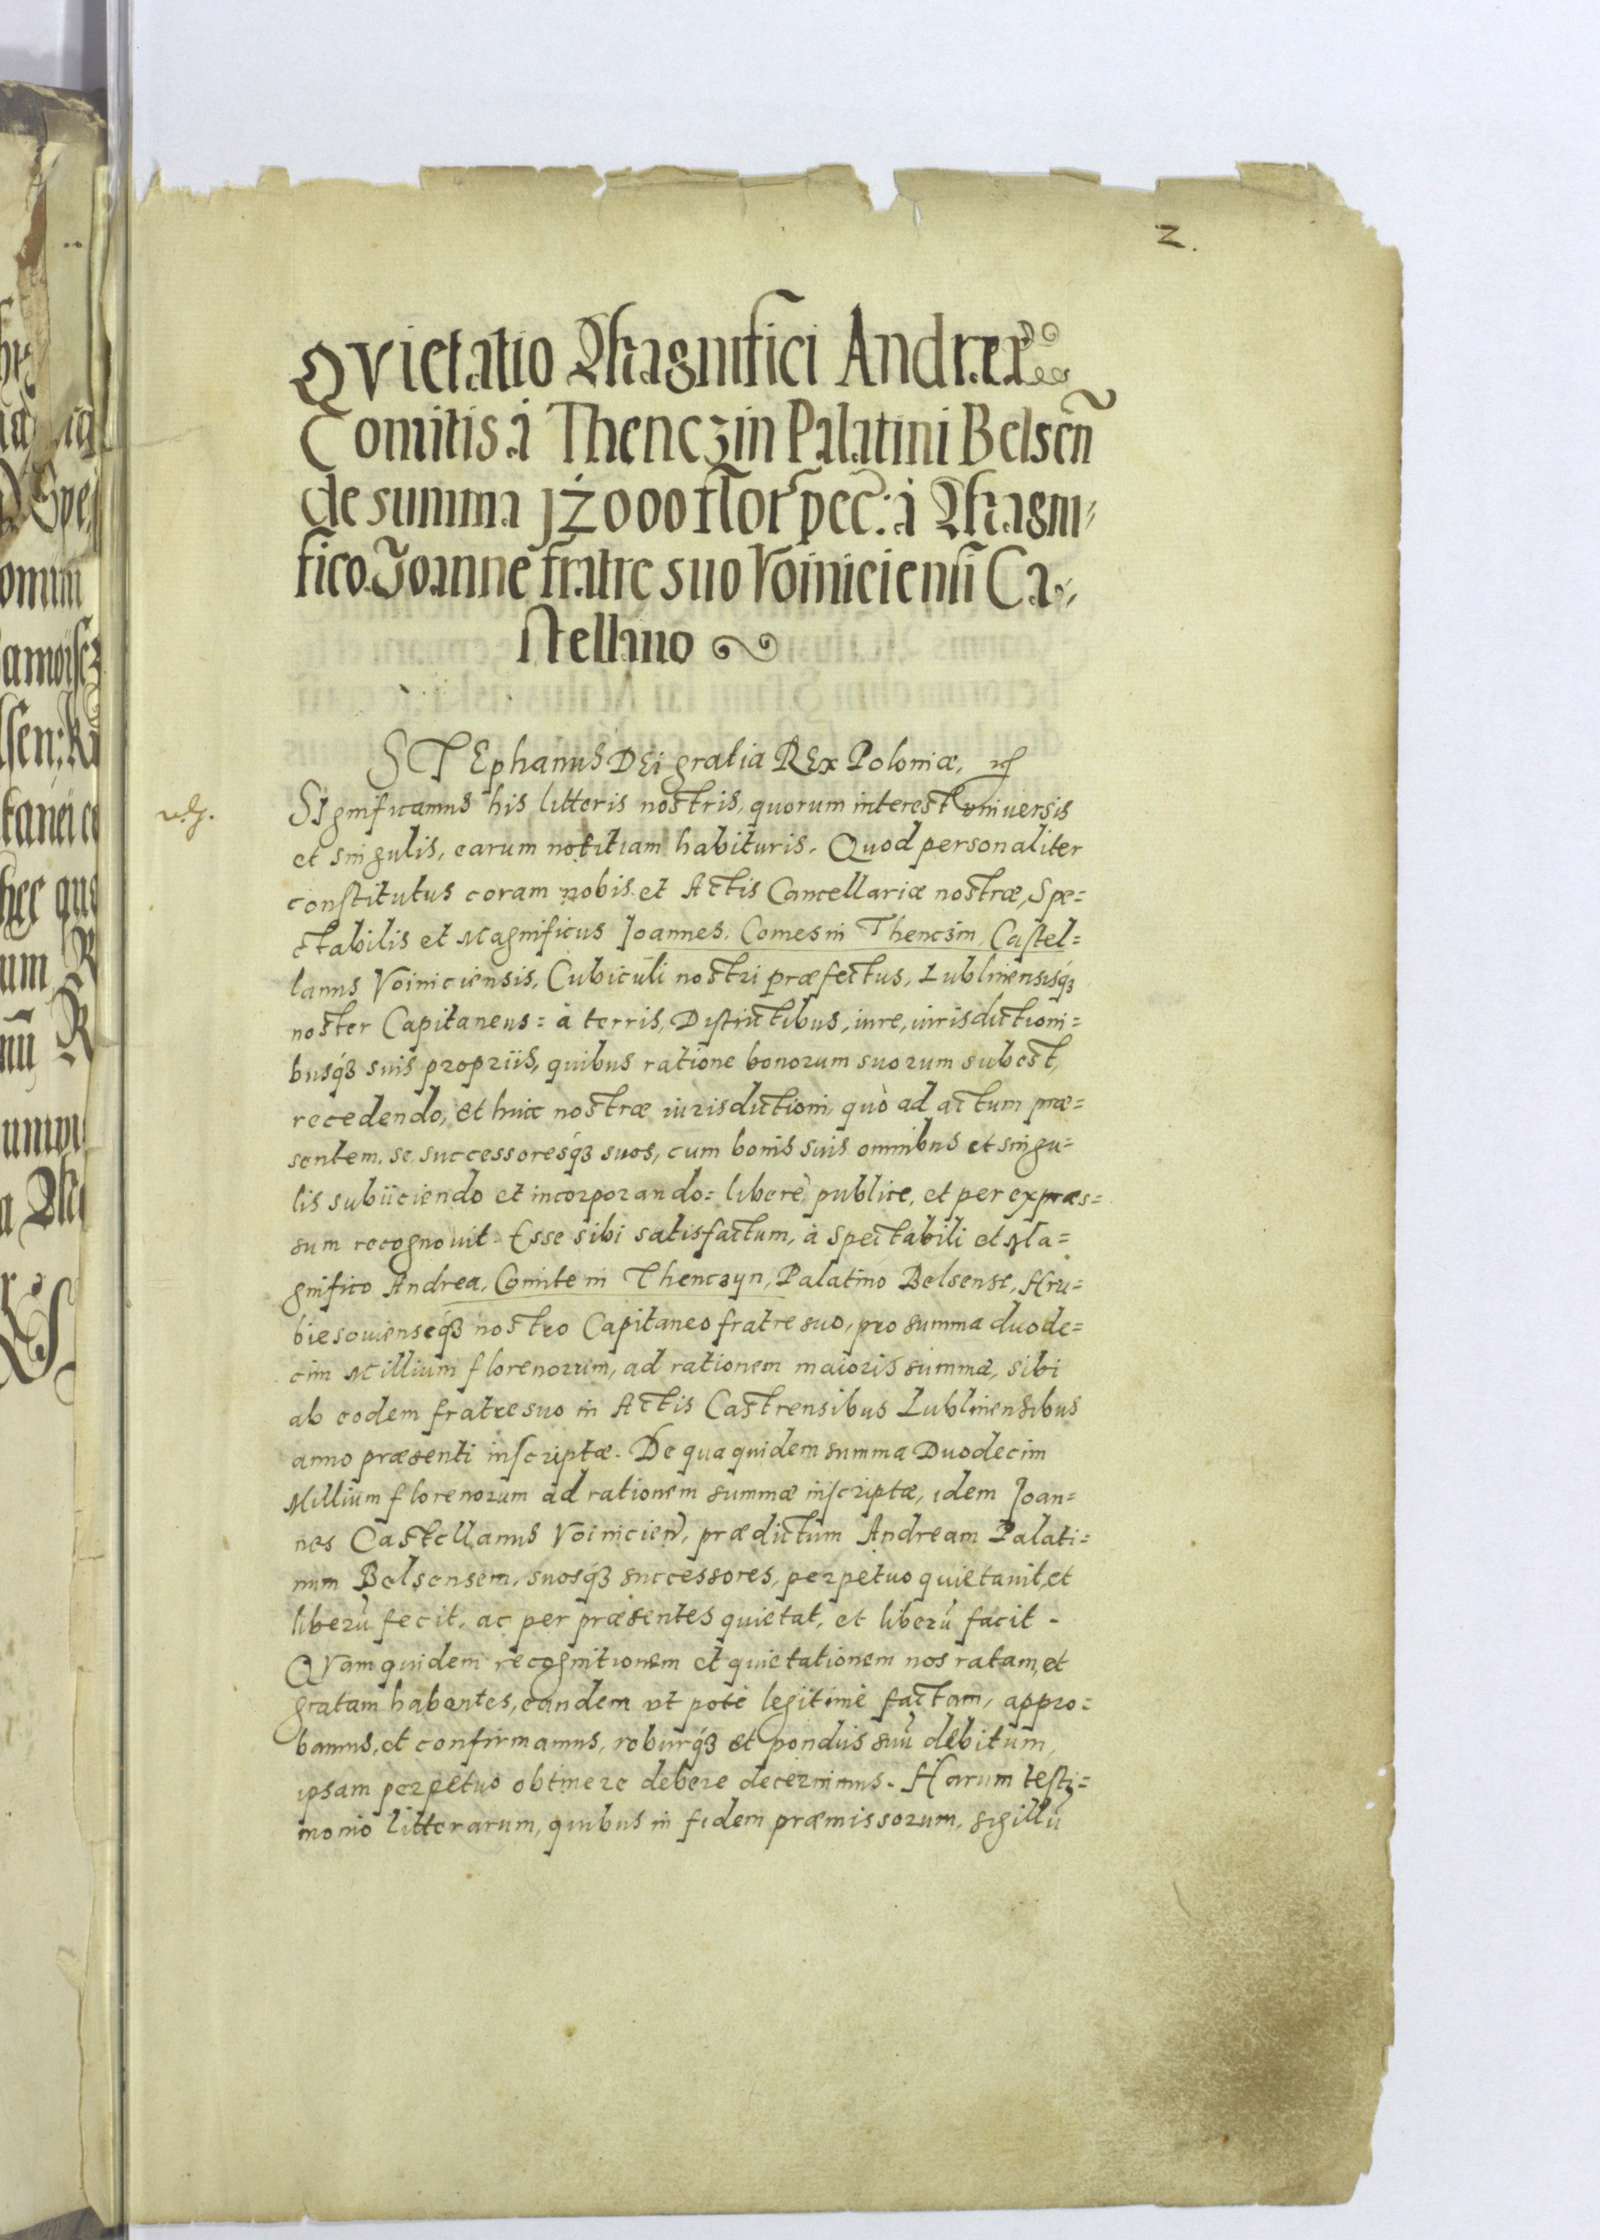 2.
Qvietatio Magnifici Andreæ
Comitis à Thenczin Palatini Belsen̄
de summa 12000 flor̄ pec̄: à Magni=
fico Joanne fratre suo Voiniciensi Ca=
stellano
STEphanus DEi gratia REx Poloniæ,
Significamus his litteris nostris, quorum interest vniuersis
et singulis, earum notitiam habituris. Quod personaliter
constitutus coram nobis et Actis Cancellariæ nostræ, Spe=
ctabilis et Magnificus Joannes, Comes in Thenczin, Castel=
lanus Voiniciensis, Cubiculi nostri præfectus, Lublinensisq́ȝ
noster Capitaneus = à terris, Districtibus, iure, iurisdictioni=
busq́ȝ suis propriis, quibus ratione bonorum suorum subest,
recedendo, et huic nostræ iurisdictioni, quò ad actum præ=
sentem, se, successoresq́ȝ suos, cum bonis suis omnibus et singu=
lis subiiciendo et incorporando = liberè, publice, et per expræs=
sum recognouit. Esse sibi satisfactum, à Spectabili et Ma=
gnifico Andrea, Comite in Thenczyn, Palatino Belsense, Hru=
biesouienseq́ȝ nostro Capitaneo fratre suo, pro summa duode=
cim Millium florenorum, ad rationem maioris summæ, sibi
ab eodem fratre suo in Actis Castrensibus Lublinensibus
anno præsenti inscriptæ. De qua quidem summa Duodecim
Millium florenorum ad rationem summæ inscriptæ, idem Joan=
nes Castellanus Voinicien̄, prædictum Andream Palati=
num Belsensem, suosq́ȝ successores, perpetuo quietauit, et
liberū fecit, ac per præsentes quietat, et liberū facit -
QVam quidem recognitionem et quietationem nos ratam, et
gratam habentes, eandem vt potè legitimè factam, appro=
bamus, et confirmamus, roburq́ȝ et pondus suū debitum,
ipsam perpetuo obtinere debere decernimus. Harum testi=
monio litterarum, quibus in fidem præmissorum, sigillū